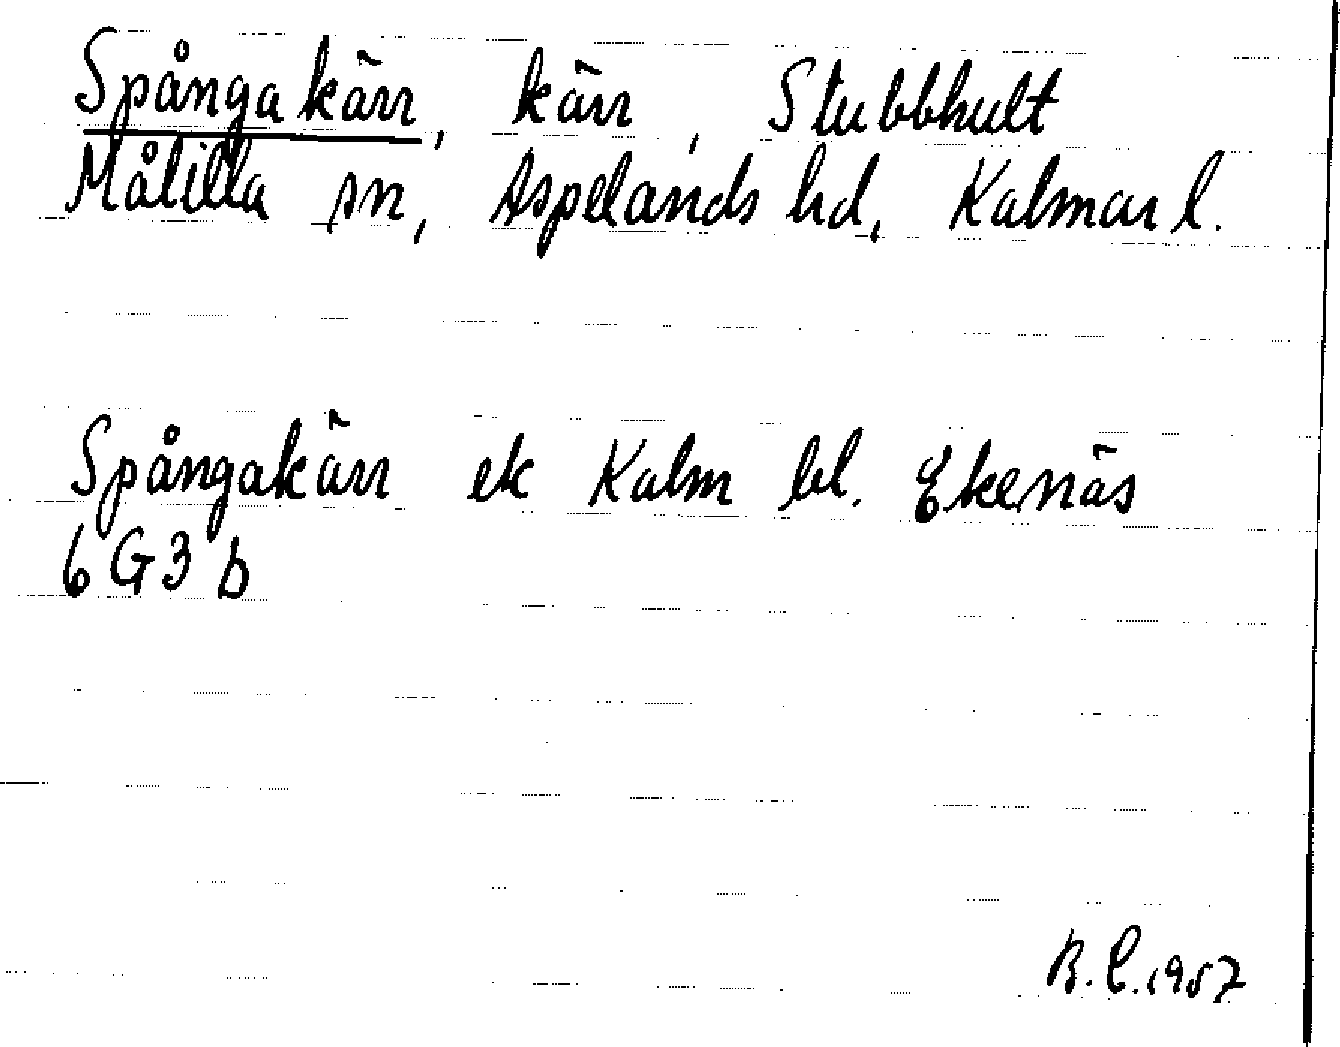 Spångakärr, kärr, Stubbhult
Målilla sn, Aspelands hd, Kalmar l.
Spångakärr ek Kalm bl. Ekenäs
6 G 3 b
B.C. 1957